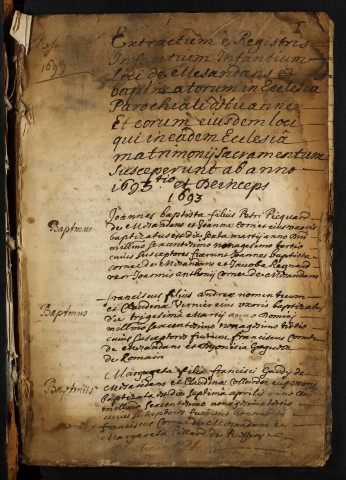 I
1693
Extractum e Registris
Infantium
loci de Mesandans et
baptizatorum in Ecclesia
Parochiali d'huanne
Et eorum eiusdem loci
qui in eadem Ecclesiâ
matrimonij sacramentum
susceperunt ab anno
1693tio et deinceps
1693
Baptmus
Joannes baptista filius Petri Picquard
de Mesandans et Joannæ Cornet eius uxoris
baptizatus est die sexta martij anno Dni
millmo sexcentesimo nonagesimo tertio
cuius susceptores fuerunt Joannes baptista
Cornet de Mesandans et Jacoba
uxor Joannis Anthonij Cornet de Mesandans
Baptmus
Franciscus filius andreæ
et Claudinæ Vernier eius uxoris baptizatus
die trigesima martij anno Domini
millmo sexcentesimo nonagesimo tertio
cuius susceptores fuerunt Franciscus Cornet
de Mesandans et
de Romain
Baptmus
Margareta filia francisci Gaudy de
Mesandans et Claudinæ eius uxoris
baptizata est die septima aprilis anno Dni
millmo sexcentesimo nonagesimo tertio
cuius susceptores fuerunt
franciscus Cornet de Mesandans et
Margareta